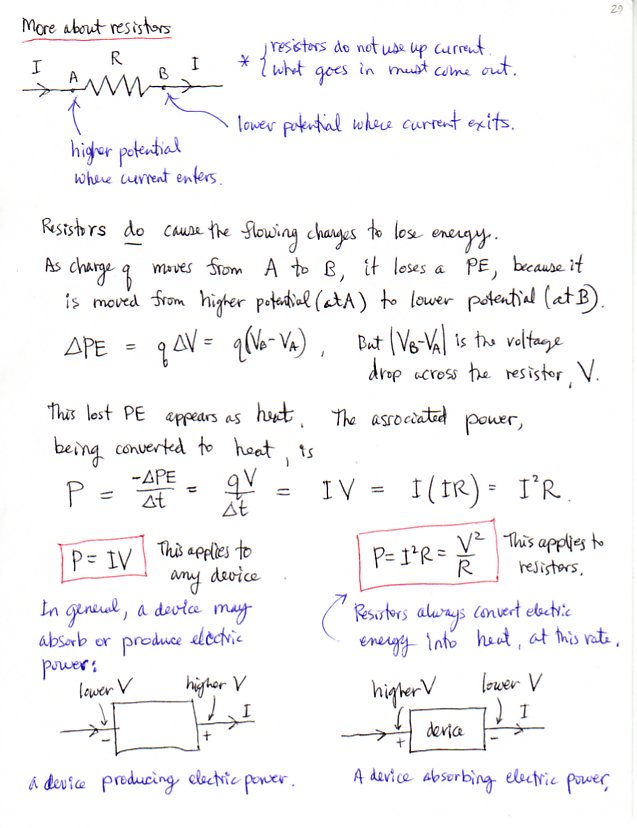 29
More about resistors
I A R B I
* { resistors do not use up current.
what goes in must come out.
lower potential where current exits.
higher potential
where current enters.
Resistors do cause the flowing charges to lose energy.
As charge q moves from A to B, it loses a PE, because it
is moved from higher potential (at A) to lower potential (at B).
ΔPE = qΔV = q(VB-VA), But |VB-VA| is the voltage
drop across the resistor, V.
This lost PE appears as heat. The associated power,
being converted to heat, is
P = -ΔPE/Δt = qV/Δt = IV = I(IR) = I²R.
P = IV This applies to
any device
P = I²R = V²/R This applies to
resistors.
In general, a device may
absorb or produce electric
power:
Resistors always convert electric
energy into heat, at this rate.
lower V higher V
- + I
a device producing electric power.
higher V lower V
+ device - I
A device absorbing electric power,